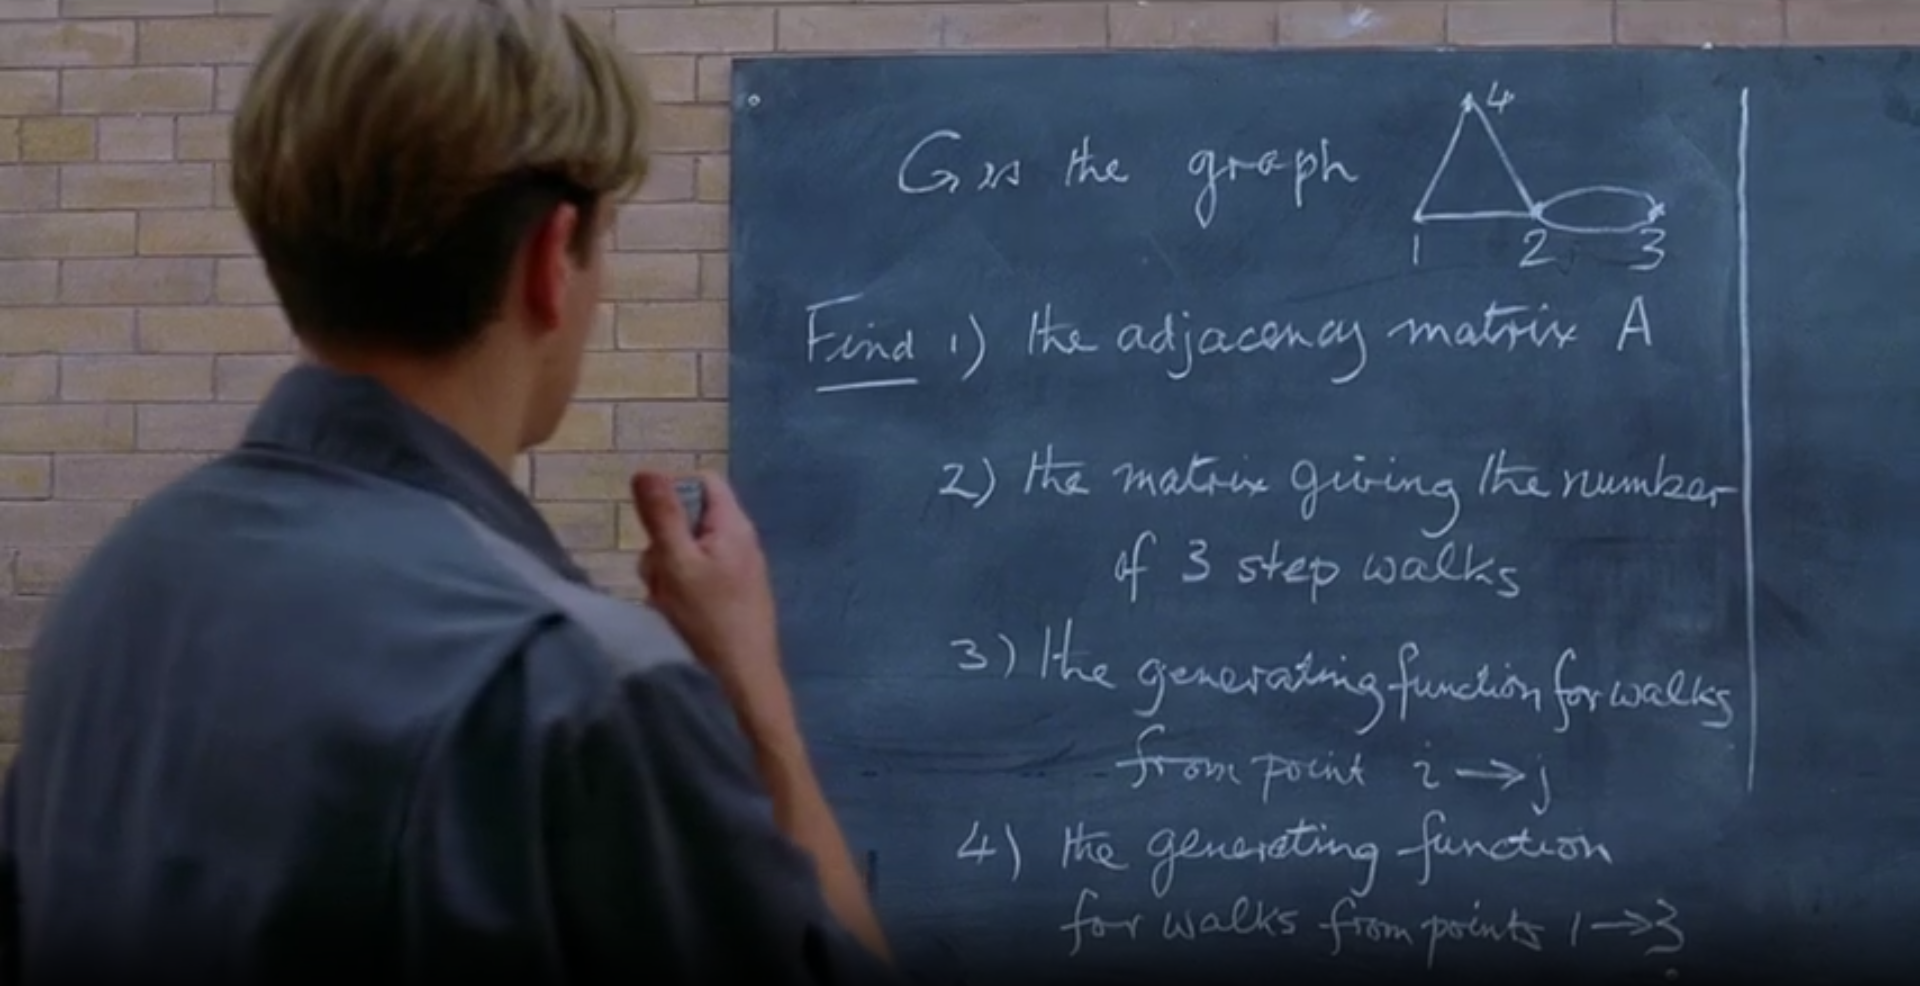 G is the graph
4
1 2 3
Find 1) the adjacency matrix A
2) the matrix giving the number
of 3 step walks
3) the generating function for walks
from point i → j
4) the generating function
for walks from points 1 → 3